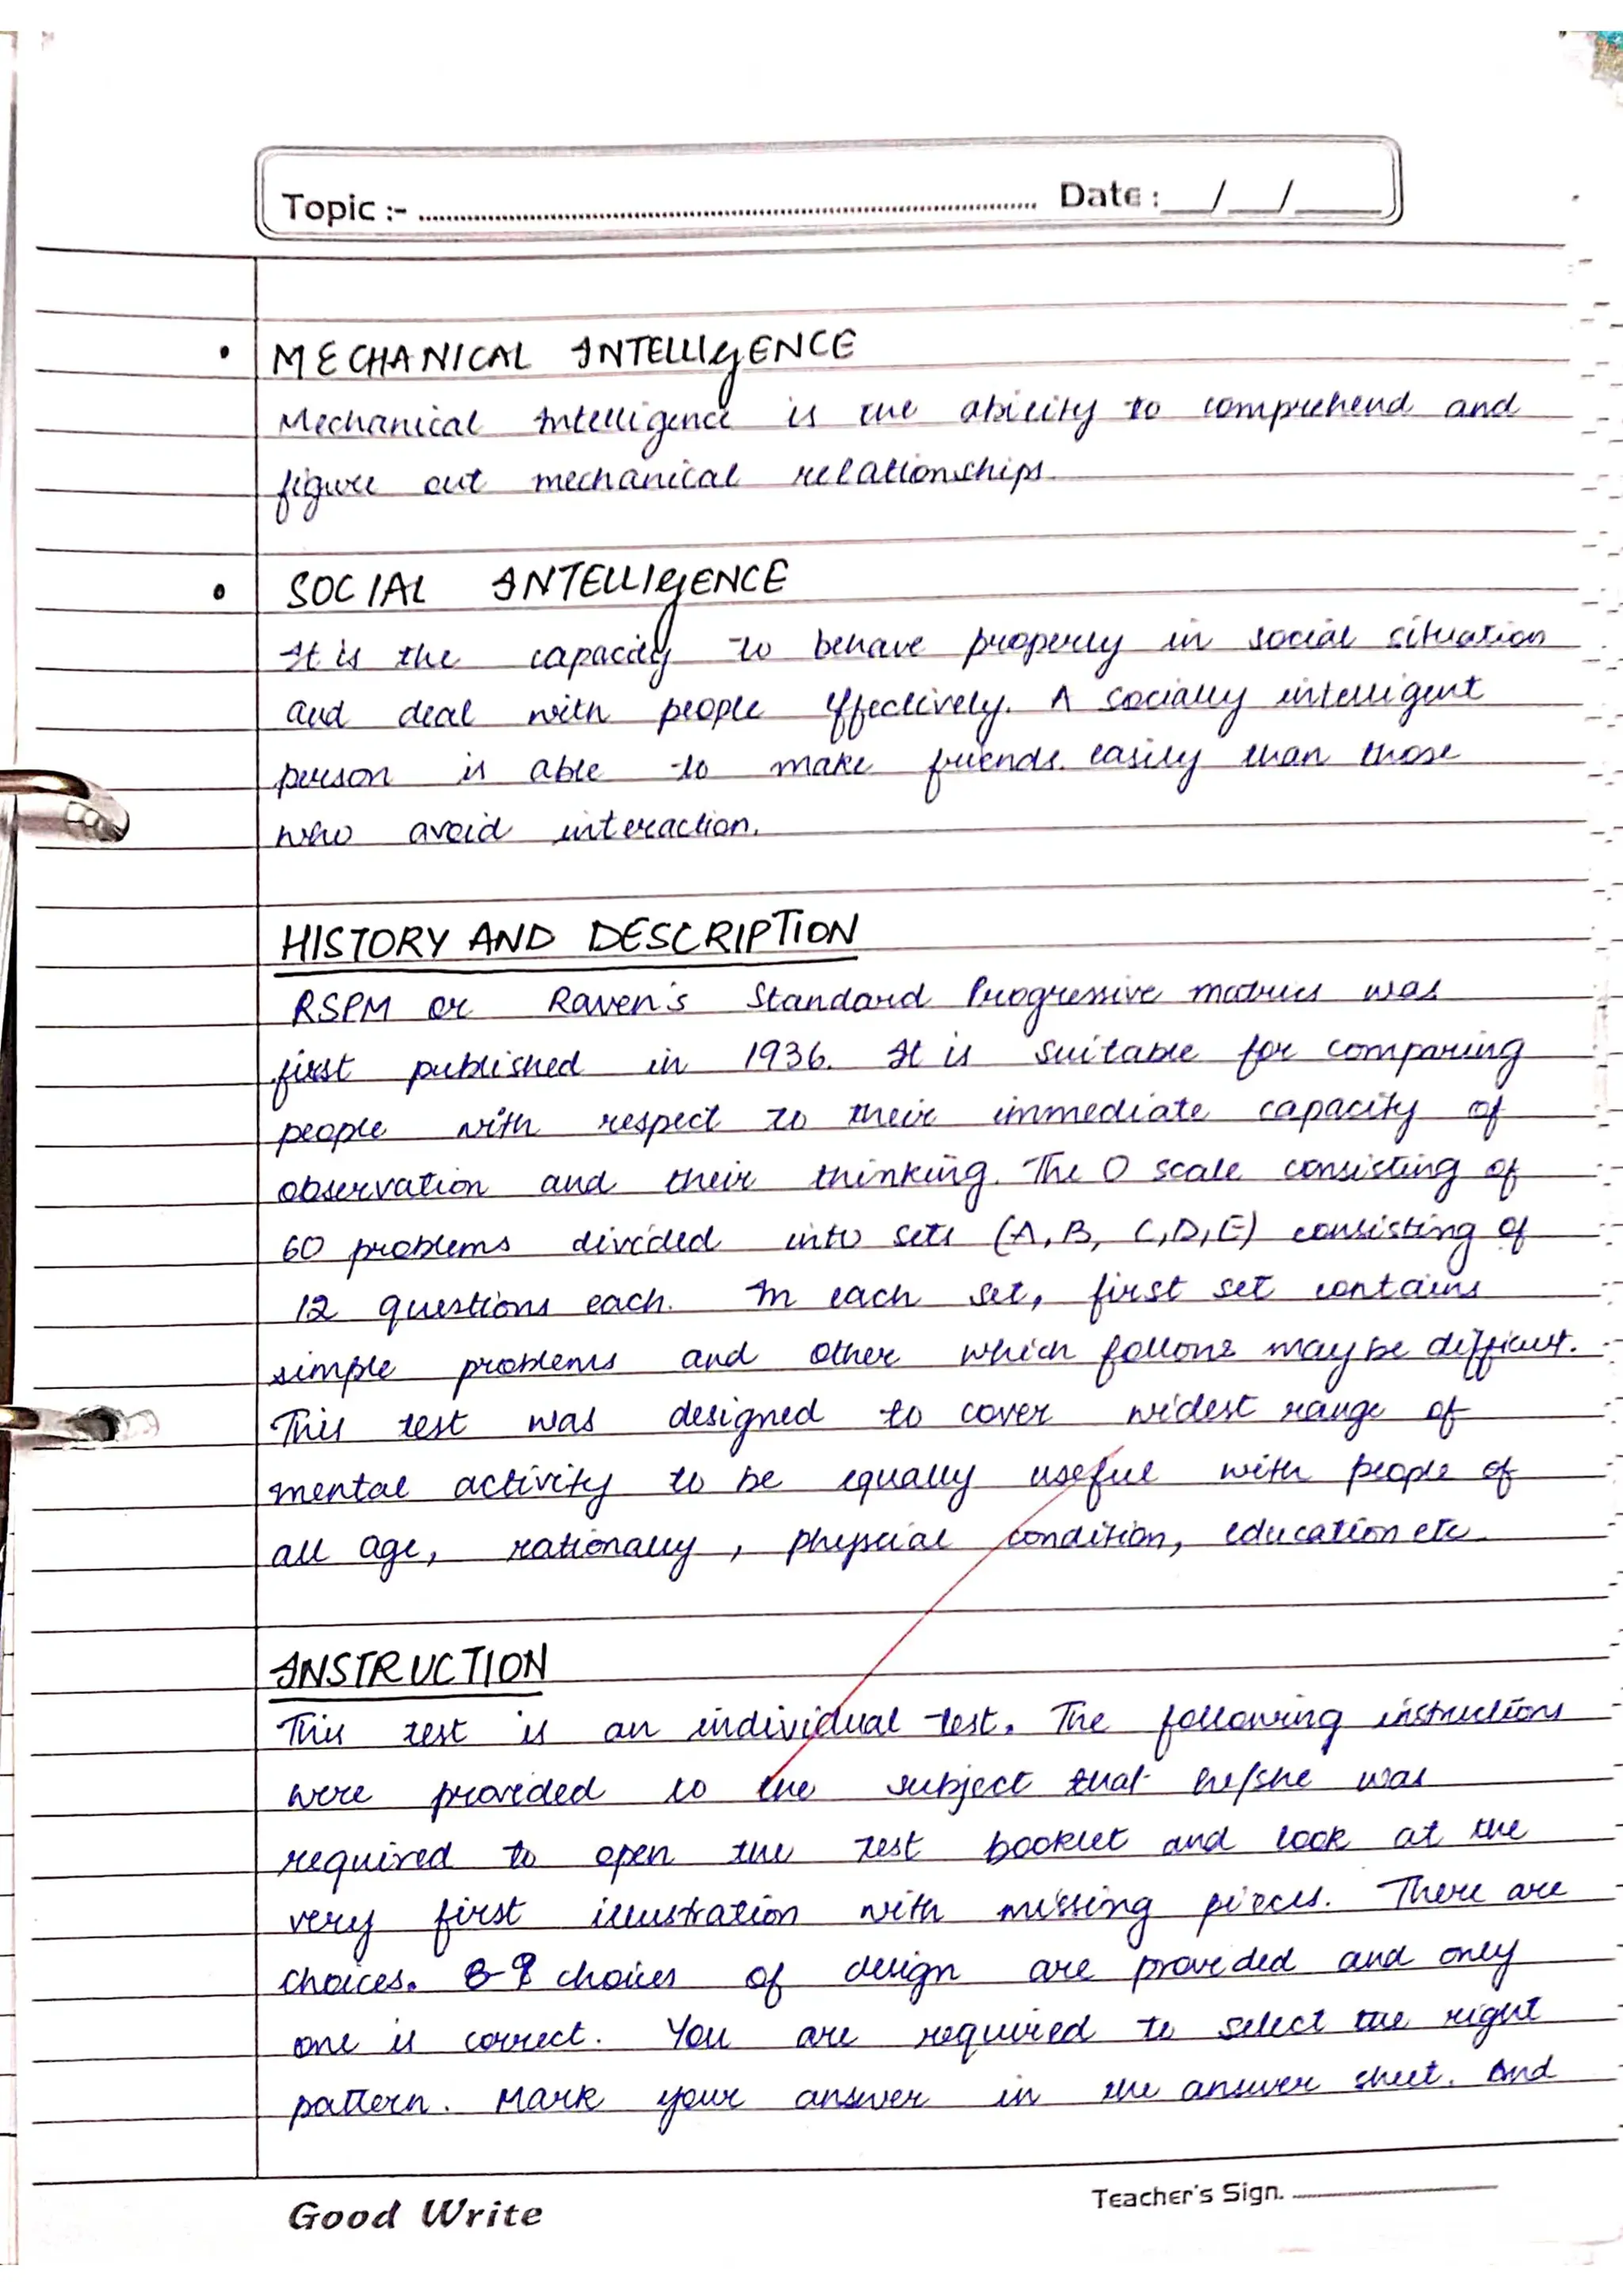 Topic :- ........ Date : __/__/____
• MECHANICAL INTELLIGENCE
Mechanical Intelligence is the ability to comprehend and
figure out mechanical relationships.
• SOCIAL INTELLIGENCE
It is the capacity to behave properly in social situation
and deal with people effectively. A socially intelligent
person is able to make friends. easily than those
who avoid interaction.
HISTORY AND DESCRIPTION
RSPM or Raven's Standard Progressive matrics was
first published in 1936. It is suitable for comparing
people with respect to their immediate capacity of
observation and their thinking. The O scale consisting of
60 problems divided into sets (A, B, C, D, E) consisting of
12 questions each. In each set, first set contains
simple problems and other which follons may be difficult.
This test was designed to cover widest range of
mental activity to be equally useful with people of
all age, rationally, physcial condition, education etc.
INSTRUCTION
This test is an individual test. The following instructions
were provided to the subject that he/she was
required to open the test booklet and look at the
very first illustration with missing pieces. There are
choices. 8-9 choices of design are provided and only
one is correct. You are required to select the right
pattern. Mark your answer in the answer sheet. And
Good Write
Teacher's Sign.